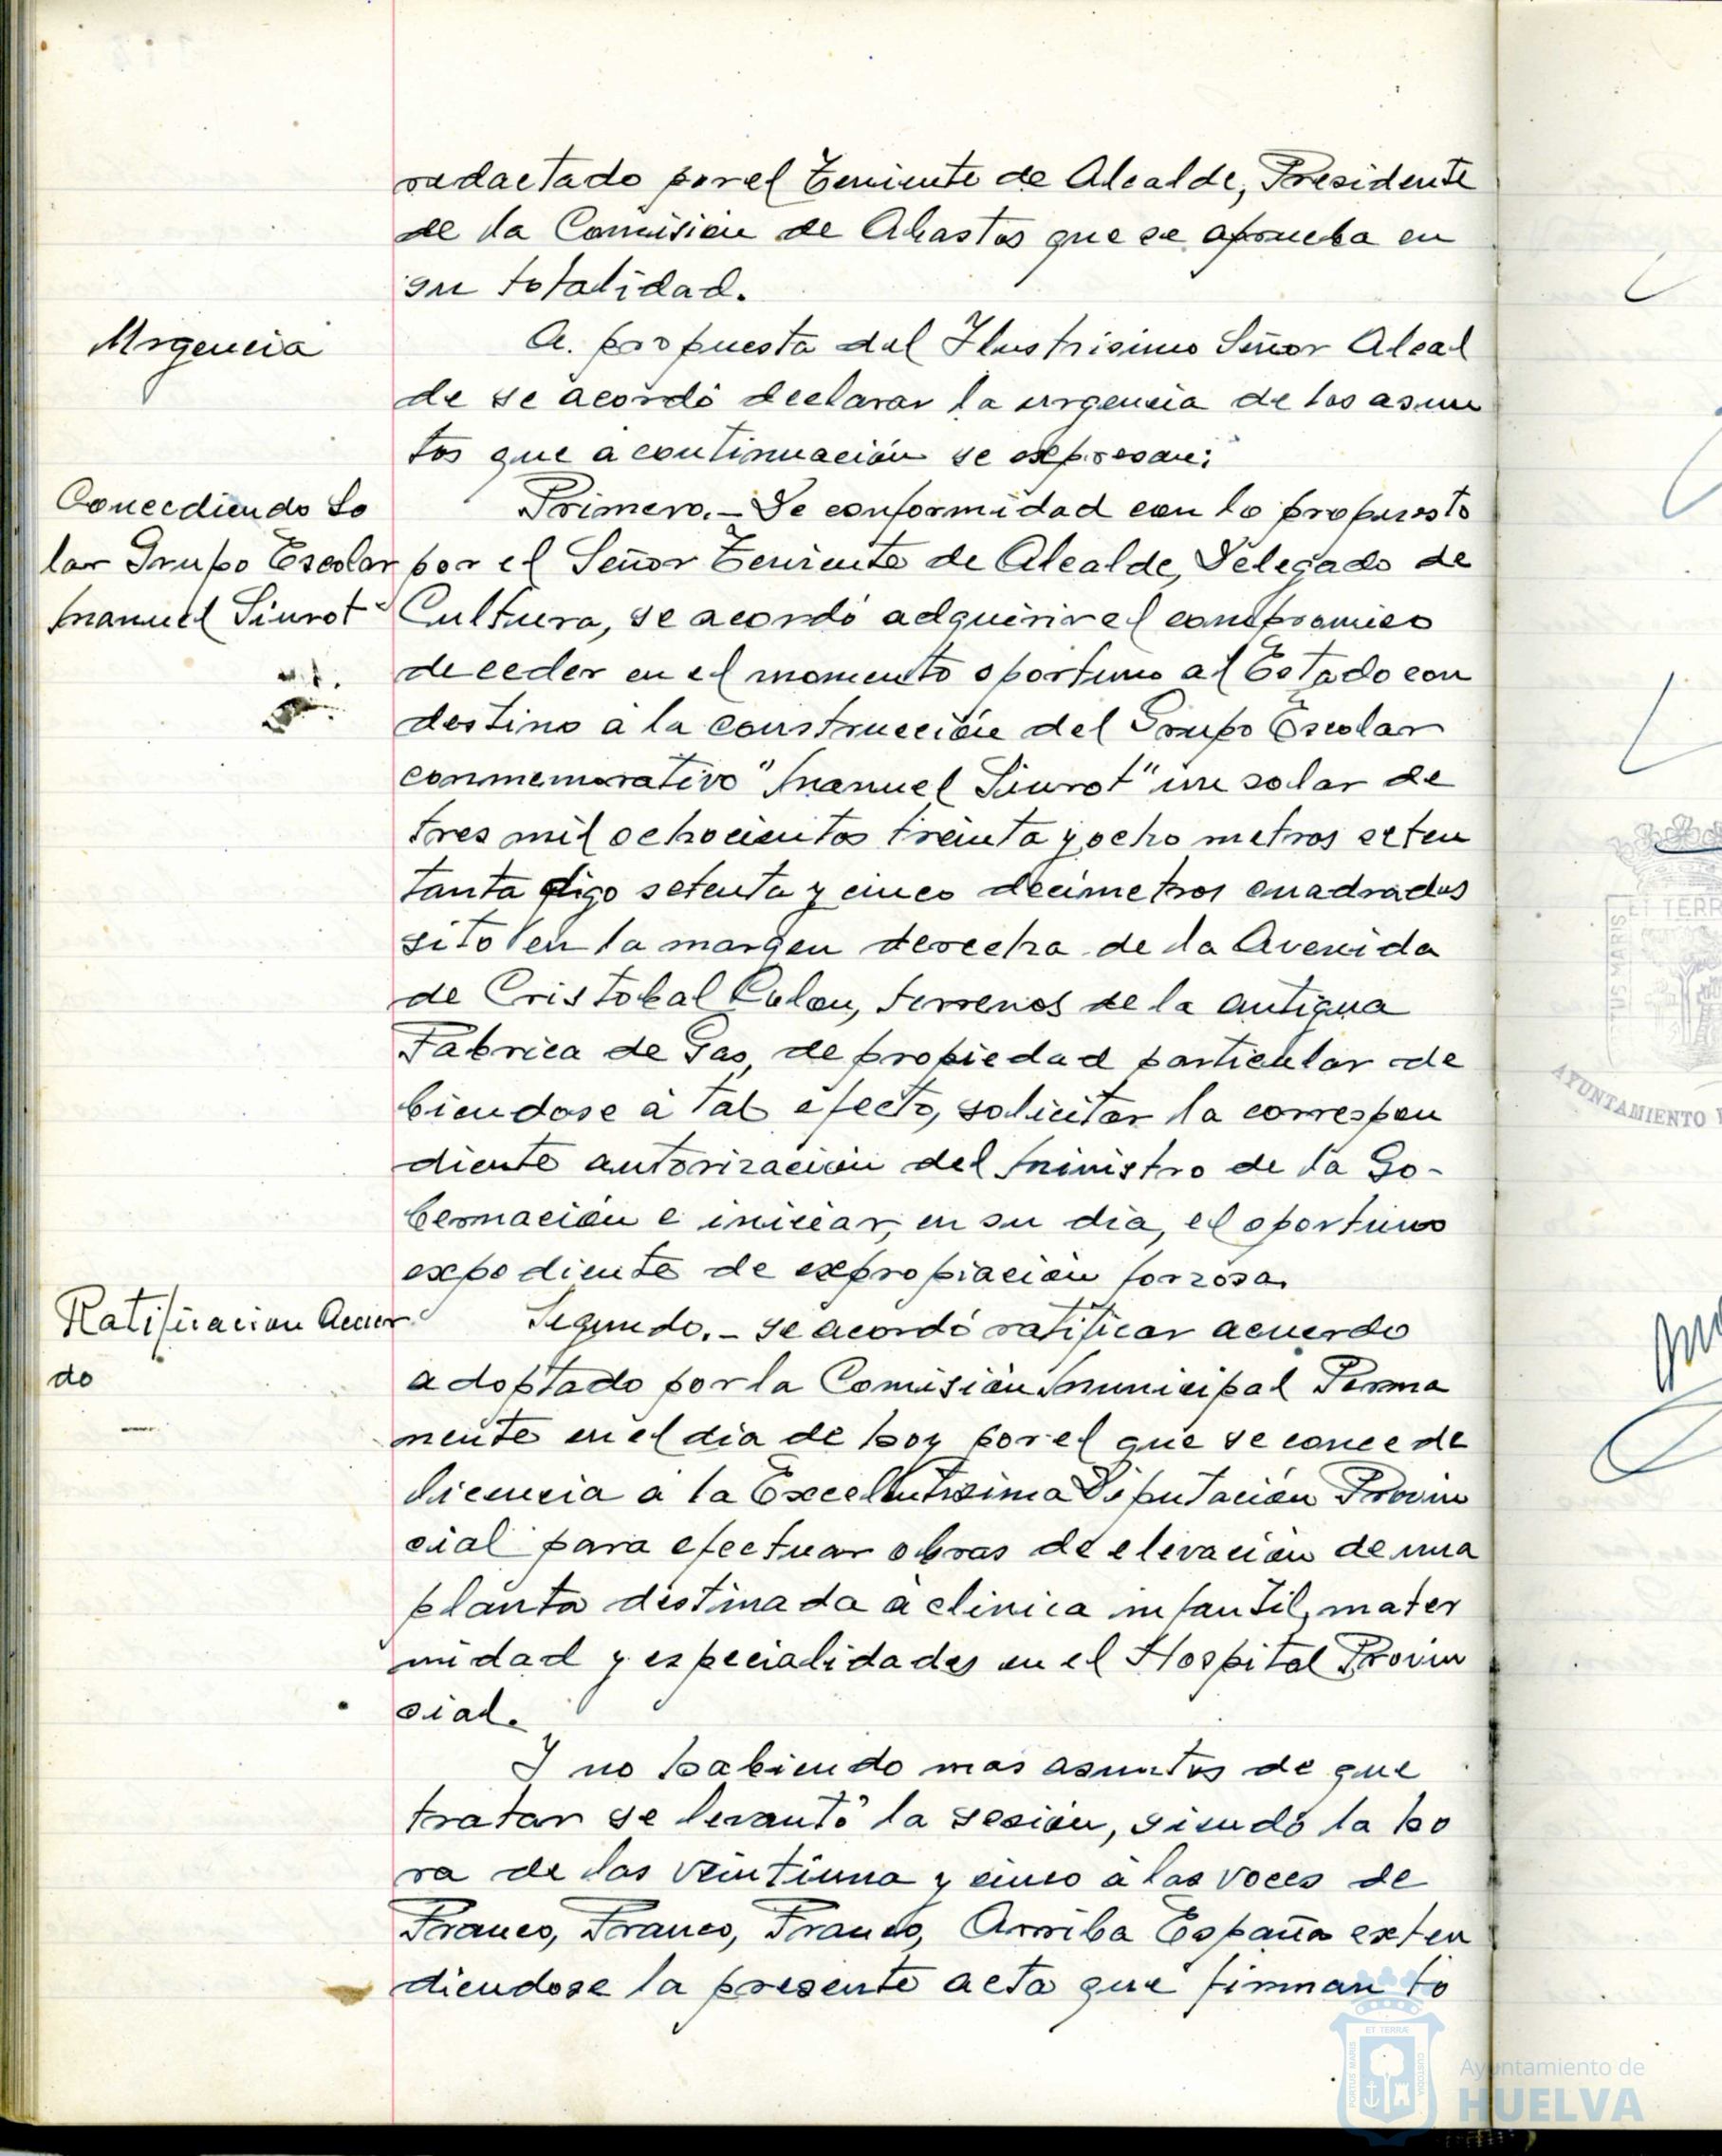 redactado por el Teniente de Alcalde, Presidente
de la Comisión de Abastos que se aprueba en
su totalidad.
Urgencia
A. propuesta del Ilustrisimo Señor Alcal
de se acordó declarar la urgencia de los asun
tos que a continuación se expresan:
Concediendo So
lar Grupo Escolar
Manuel Siurot
Primero.- De conformidad con lo propuesto
por el Señor Teniente de Alcalde, Delegado de
Cultura, se acordó adquirir el compromiso
de ceder en el momento oportuno al Estado con
destino a la construcción del Grupo Escolar
conmemorativo "Manuel Siurot" un solar de
tres mil ochocientos treinta y ocho metros seten
tanta digo setenta y cinco decimetros cuadrados
sito en la margen derecha de la Avenida
de Cristobal Colon, terrenos de la antigua
Fabrica de Gas, de propiedad particular de
biendose a tal efecto, solicitar la correspon
diente autorización del Ministro de la Go-
bernación e iniciar, en su dia, el oportuno
expediente de expropiación forzosa.
Ratificacion Acuer
do
Segundo.- Se acordó ratificar acuerdo
adoptado por la Comisión Municipal Perma
nente en el dia de hoy por el que se concede
licencia a la Excelentisima Diputación Provin
cial para efectuar obras de elevación de una
planta destinada a clinica infantil, mater
nidad y especialidades en el Hospital Provin
cial.
Y no habiendo mas asuntos de que
tratar se levantó la sesión, siendo la ho
ra de las veintiuna y cinco a las voces de
Franco, Franco, Franco, Arriba España exten
diendose la presente acta que firman to
ET TERR
AYUNTAMIENTO
PORTUS MARIS
ET TERRÆ
CUSTODIA
Ayuntamiento de
HUELVA